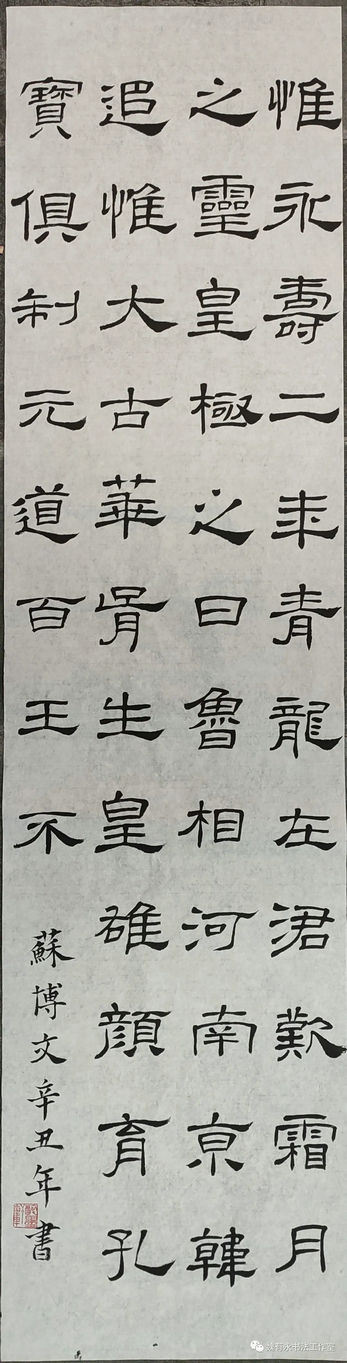 惟永壽二年青龍在涒歎霜月
之靈皇極之日魯相河南京韓
追惟大古華胥生皇雄顏育孔
寶俱制元道百王不
蘇博文辛丑年書
有永书法工作室